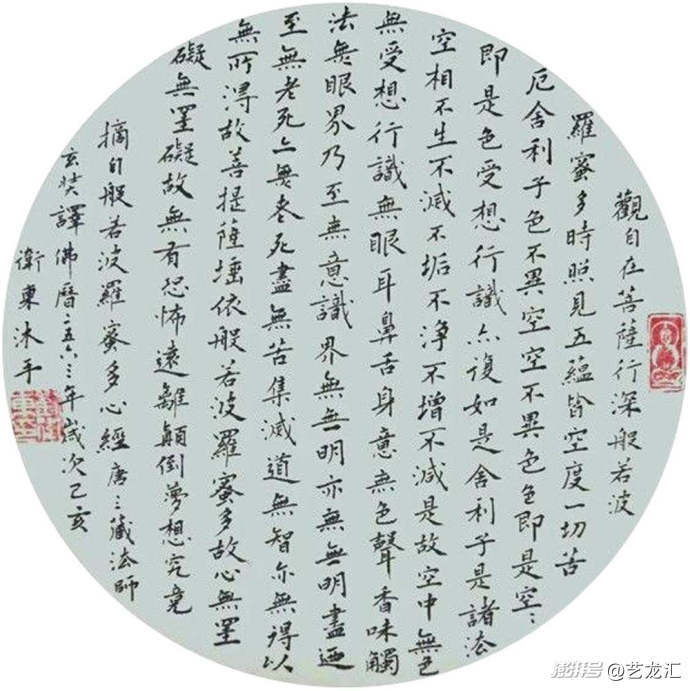 觀自在菩薩行深般若波
羅蜜多時照見五蘊皆空度一切苦
厄舍利子色不異空空不異色色即是空〻
即是色受想行識亦復如是舍利子是諸法
空相不生不滅不垢不淨不增不減是故空中無色
無受想行識無眼耳鼻舌身意無色聲香味觸
法無眼界乃至無意識界無無明亦無無明盡迺
至無老死亦無老死盡無苦集滅道無智亦無得以
無所得故菩提薩埵依般若波羅蜜多故心無罣
礙無罣礙故無有恐怖遠離顛倒夢想究竟
摘自般若波羅蜜多心經唐三藏法師
玄奘譯佛曆二五六三年歲次己亥
衛東沐手
澎湃号 @艺龙汇